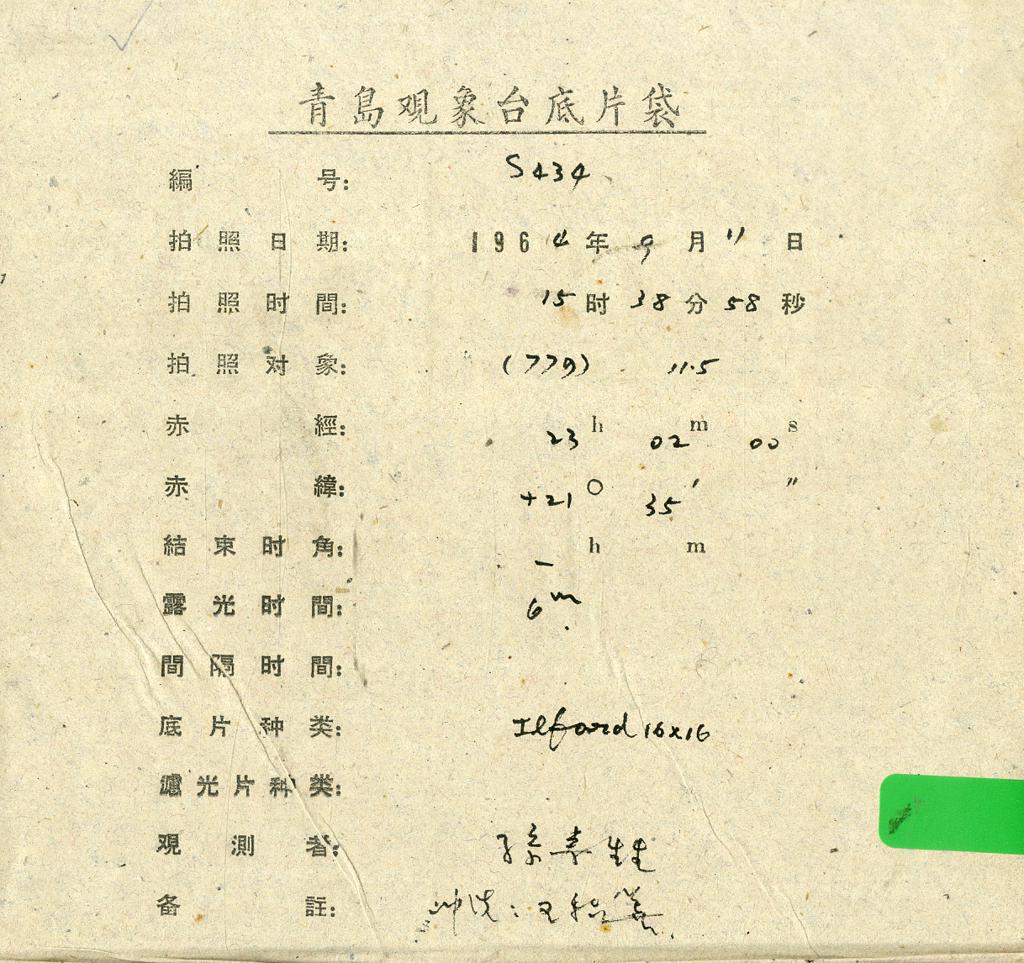 青島观象台底片袋
編 号: S434
拍照日期: 1964年9月11日
拍照时間: 15时38分58秒
拍照对象: (779) 11.5
赤 經: 23h 02m 00s
赤 緯: +21° 35′ ″
結束时角: – h m
露光时間: 6m
間隔时間:
底片种类: Ilford 16x16
濾光片种类:
观測者: 孫
备 註: 冲洗:王